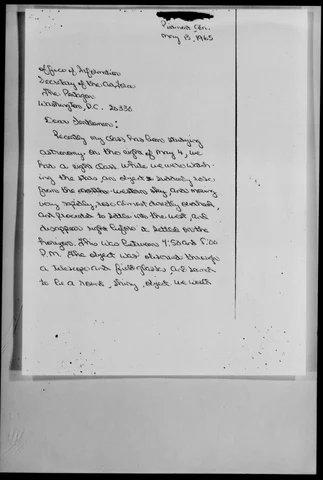 May 13, 1965
Office of Information
Secretary of the Air Force
The Pentagon
Washington, D.C. 20330
Dear Gentlemen:
Recently my class has been studying
astronomy. On the night of May 4, we
had a night class. While we were watch-
ing the stars an object suddenly rose
from the western sky, and moving
very rapidly, rose almost directly overhead,
and proceeded to settle into the west, and
disappear right before it settled on the
horizon. This was between 7:50 and 8:00
P.M. The object was observed through
a telescope and field glasses, and seemed
to be a round, shiny, object. We watch